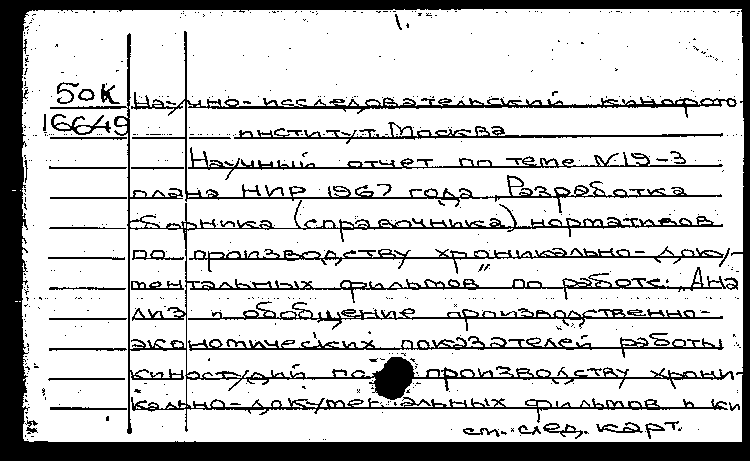 1.
50К Научно-исследовательский кинофото-
16649 институт. Москва
Научный отчет по теме №19-3
плана НИР 1967 года „Разработка
сборника (справочника) нормативов
по производству хроникально-доку-
ментальных фильмов" по работе: „Ана
лиз и обобщение производственно-
экономических показателей работы
киностудий по производству хрони-
кально-документальных фильмов и ки
см. след. карт.